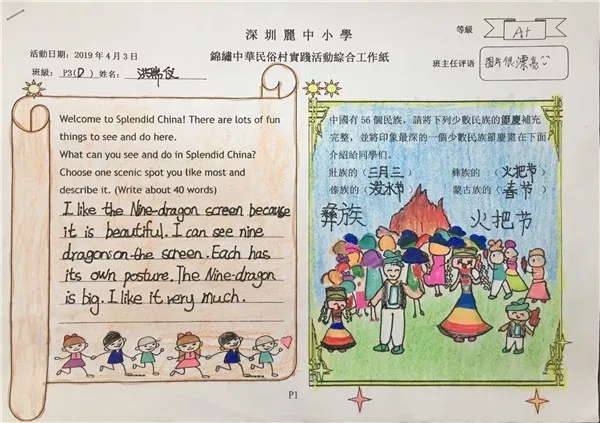 深圳麗中小學
等級
A+
活動日期：2019年4月3日
錦繡中華民俗村實踐活動綜合工作紙
班級：P3(D) 姓名：洪晞仪
班主任评语
图片很漂亮
Welcome to Splendid China! There are lots of fun
things to see and do here.
What can you see and do in Splendid China?
Choose one scenic spot you like most and
describe it. (Write about 40 words)
I like the Nine-dragon screen because
it is beautiful. I can see nine
dragons on the screen. Each has
its own posture. The Nine-dragon
is big. I like it very much.
中國有56個民族，請將下列少數民族的節慶補充
完整，並將印象最深的一個少數民族節慶畫在下面
介紹給同學們。
壯族的（三月三） 彝族的（火把节）
傣族的（泼水节） 蒙古族的（春节）
彝族 火把节
P1